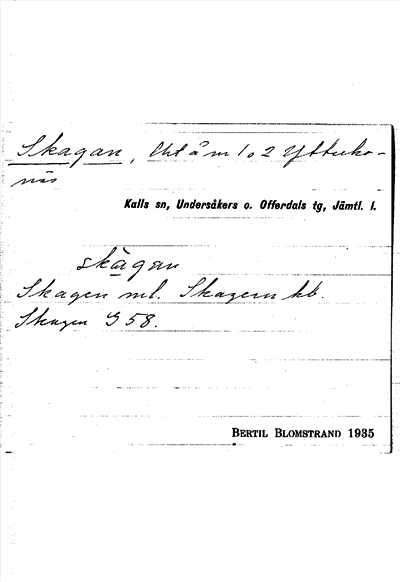 Skagan, Utä m 1 o 2 Ytterko-
näs
Kalls sn, Undersåkers o. Offerdals tg, Jämtl. l.
skagan
Skagen ml. Skagern kb.
Skagen G 58.
BERTIL BLOMSTRAND 1935